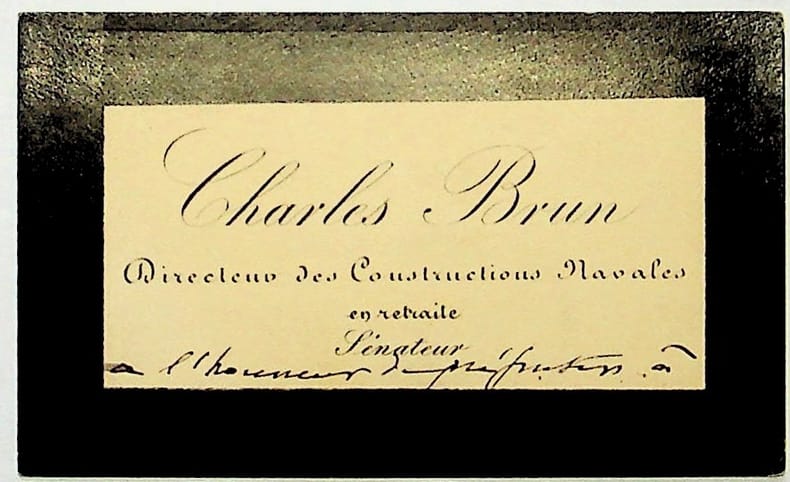 Charles Brun
Directeur des Constructions Navales
en retraite
Sénateur
a l'honneur de présenter à